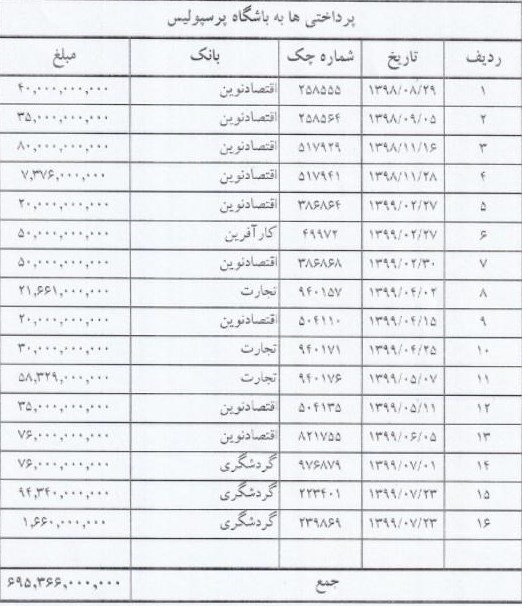 پرداختی ها به باشگاه پرسپولیس
ردیف تاریخ شماره چک بانک مبلغ
۱ ۱۳۹۸/۰۸/۲۹ ۲۵۸۵۵۵ اقتصادنوین ۴۰,۰۰۰,۰۰۰,۰۰۰
۲ ۱۳۹۸/۰۹/۰۵ ۲۵۸۵۶۴ اقتصادنوین ۳۵,۰۰۰,۰۰۰,۰۰۰
۳ ۱۳۹۸/۱۱/۱۶ ۵۱۷۹۲۹ اقتصادنوین ۸۰,۰۰۰,۰۰۰,۰۰۰
۴ ۱۳۹۸/۱۱/۲۸ ۵۱۷۹۴۱ اقتصادنوین ۷,۳۷۶,۰۰۰,۰۰۰
۵ ۱۳۹۹/۰۲/۲۷ ۳۸۶۸۶۴ اقتصادنوین ۲۰,۰۰۰,۰۰۰,۰۰۰
۶ ۱۳۹۹/۰۲/۲۷ ۴۹۹۷۲ کارآفرین ۵۰,۰۰۰,۰۰۰,۰۰۰
۷ ۱۳۹۹/۰۲/۳۰ ۳۸۶۸۶۸ اقتصادنوین ۵۰,۰۰۰,۰۰۰,۰۰۰
۸ ۱۳۹۹/۰۴/۰۲ ۹۴۰۱۵۷ تجارت ۲۱,۶۶۱,۰۰۰,۰۰۰
۹ ۱۳۹۹/۰۴/۱۵ ۵۰۴۱۱۰ اقتصادنوین ۲۰,۰۰۰,۰۰۰,۰۰۰
۱۰ ۱۳۹۹/۰۴/۲۵ ۹۴۰۱۷۱ تجارت ۳۰,۰۰۰,۰۰۰,۰۰۰
۱۱ ۱۳۹۹/۰۵/۰۷ ۹۴۰۱۷۶ تجارت ۵۸,۳۲۹,۰۰۰,۰۰۰
۱۲ ۱۳۹۹/۰۵/۱۱ ۵۰۴۱۳۵ اقتصادنوین ۳۵,۰۰۰,۰۰۰,۰۰۰
۱۳ ۱۳۹۹/۰۶/۰۵ ۸۲۱۷۵۵ اقتصادنوین ۷۶,۰۰۰,۰۰۰,۰۰۰
۱۴ ۱۳۹۹/۰۷/۰۱ ۹۷۶۸۷۹ گردشگری ۷۶,۰۰۰,۰۰۰,۰۰۰
۱۵ ۱۳۹۹/۰۷/۲۳ ۲۲۳۴۰۱ گردشگری ۹۴,۳۴۰,۰۰۰,۰۰۰
۱۶ ۱۳۹۹/۰۷/۲۳ ۲۳۹۸۶۹ گردشگری ۱,۶۶۰,۰۰۰,۰۰۰
جمع ۶۹۵,۳۶۶,۰۰۰,۰۰۰